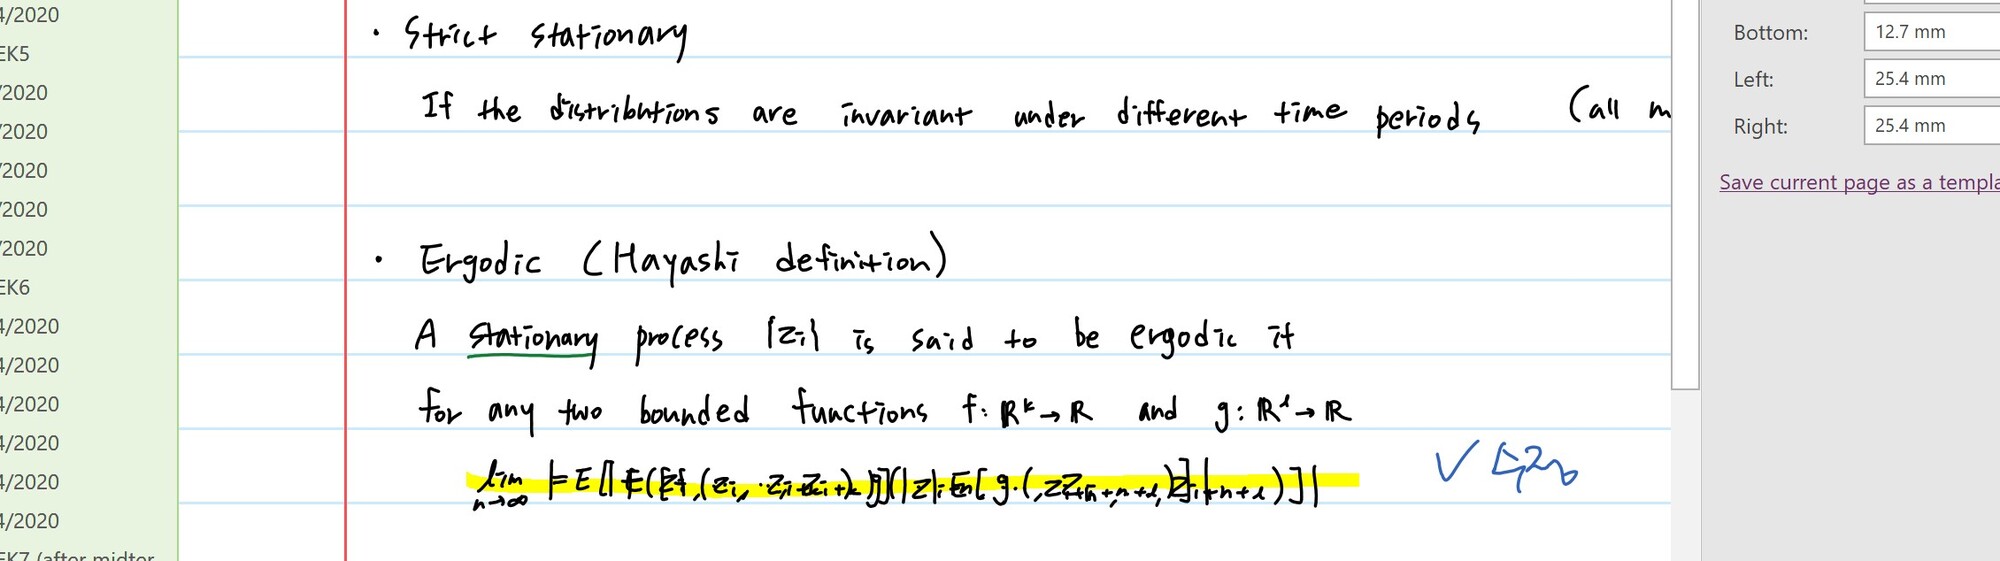 4/2020
EK5
/2020
/2020
/2020
/2020
/2020
EK6
4/2020
4/2020
4/2020
4/2020
4/2020
4/2020
EK7 (after midter
• Strict stationary
If the distributions are invariant under different time periods (all m
• Ergodic (Hayashi definition)
A stationary process {zi} is said to be ergodic if
for any two bounded functions f: ℝᵏ → ℝ and g: ℝˡ → ℝ
lim n→∞
Bottom: 12.7 mm
Left: 25.4 mm
Right: 25.4 mm
Save current page as a templa